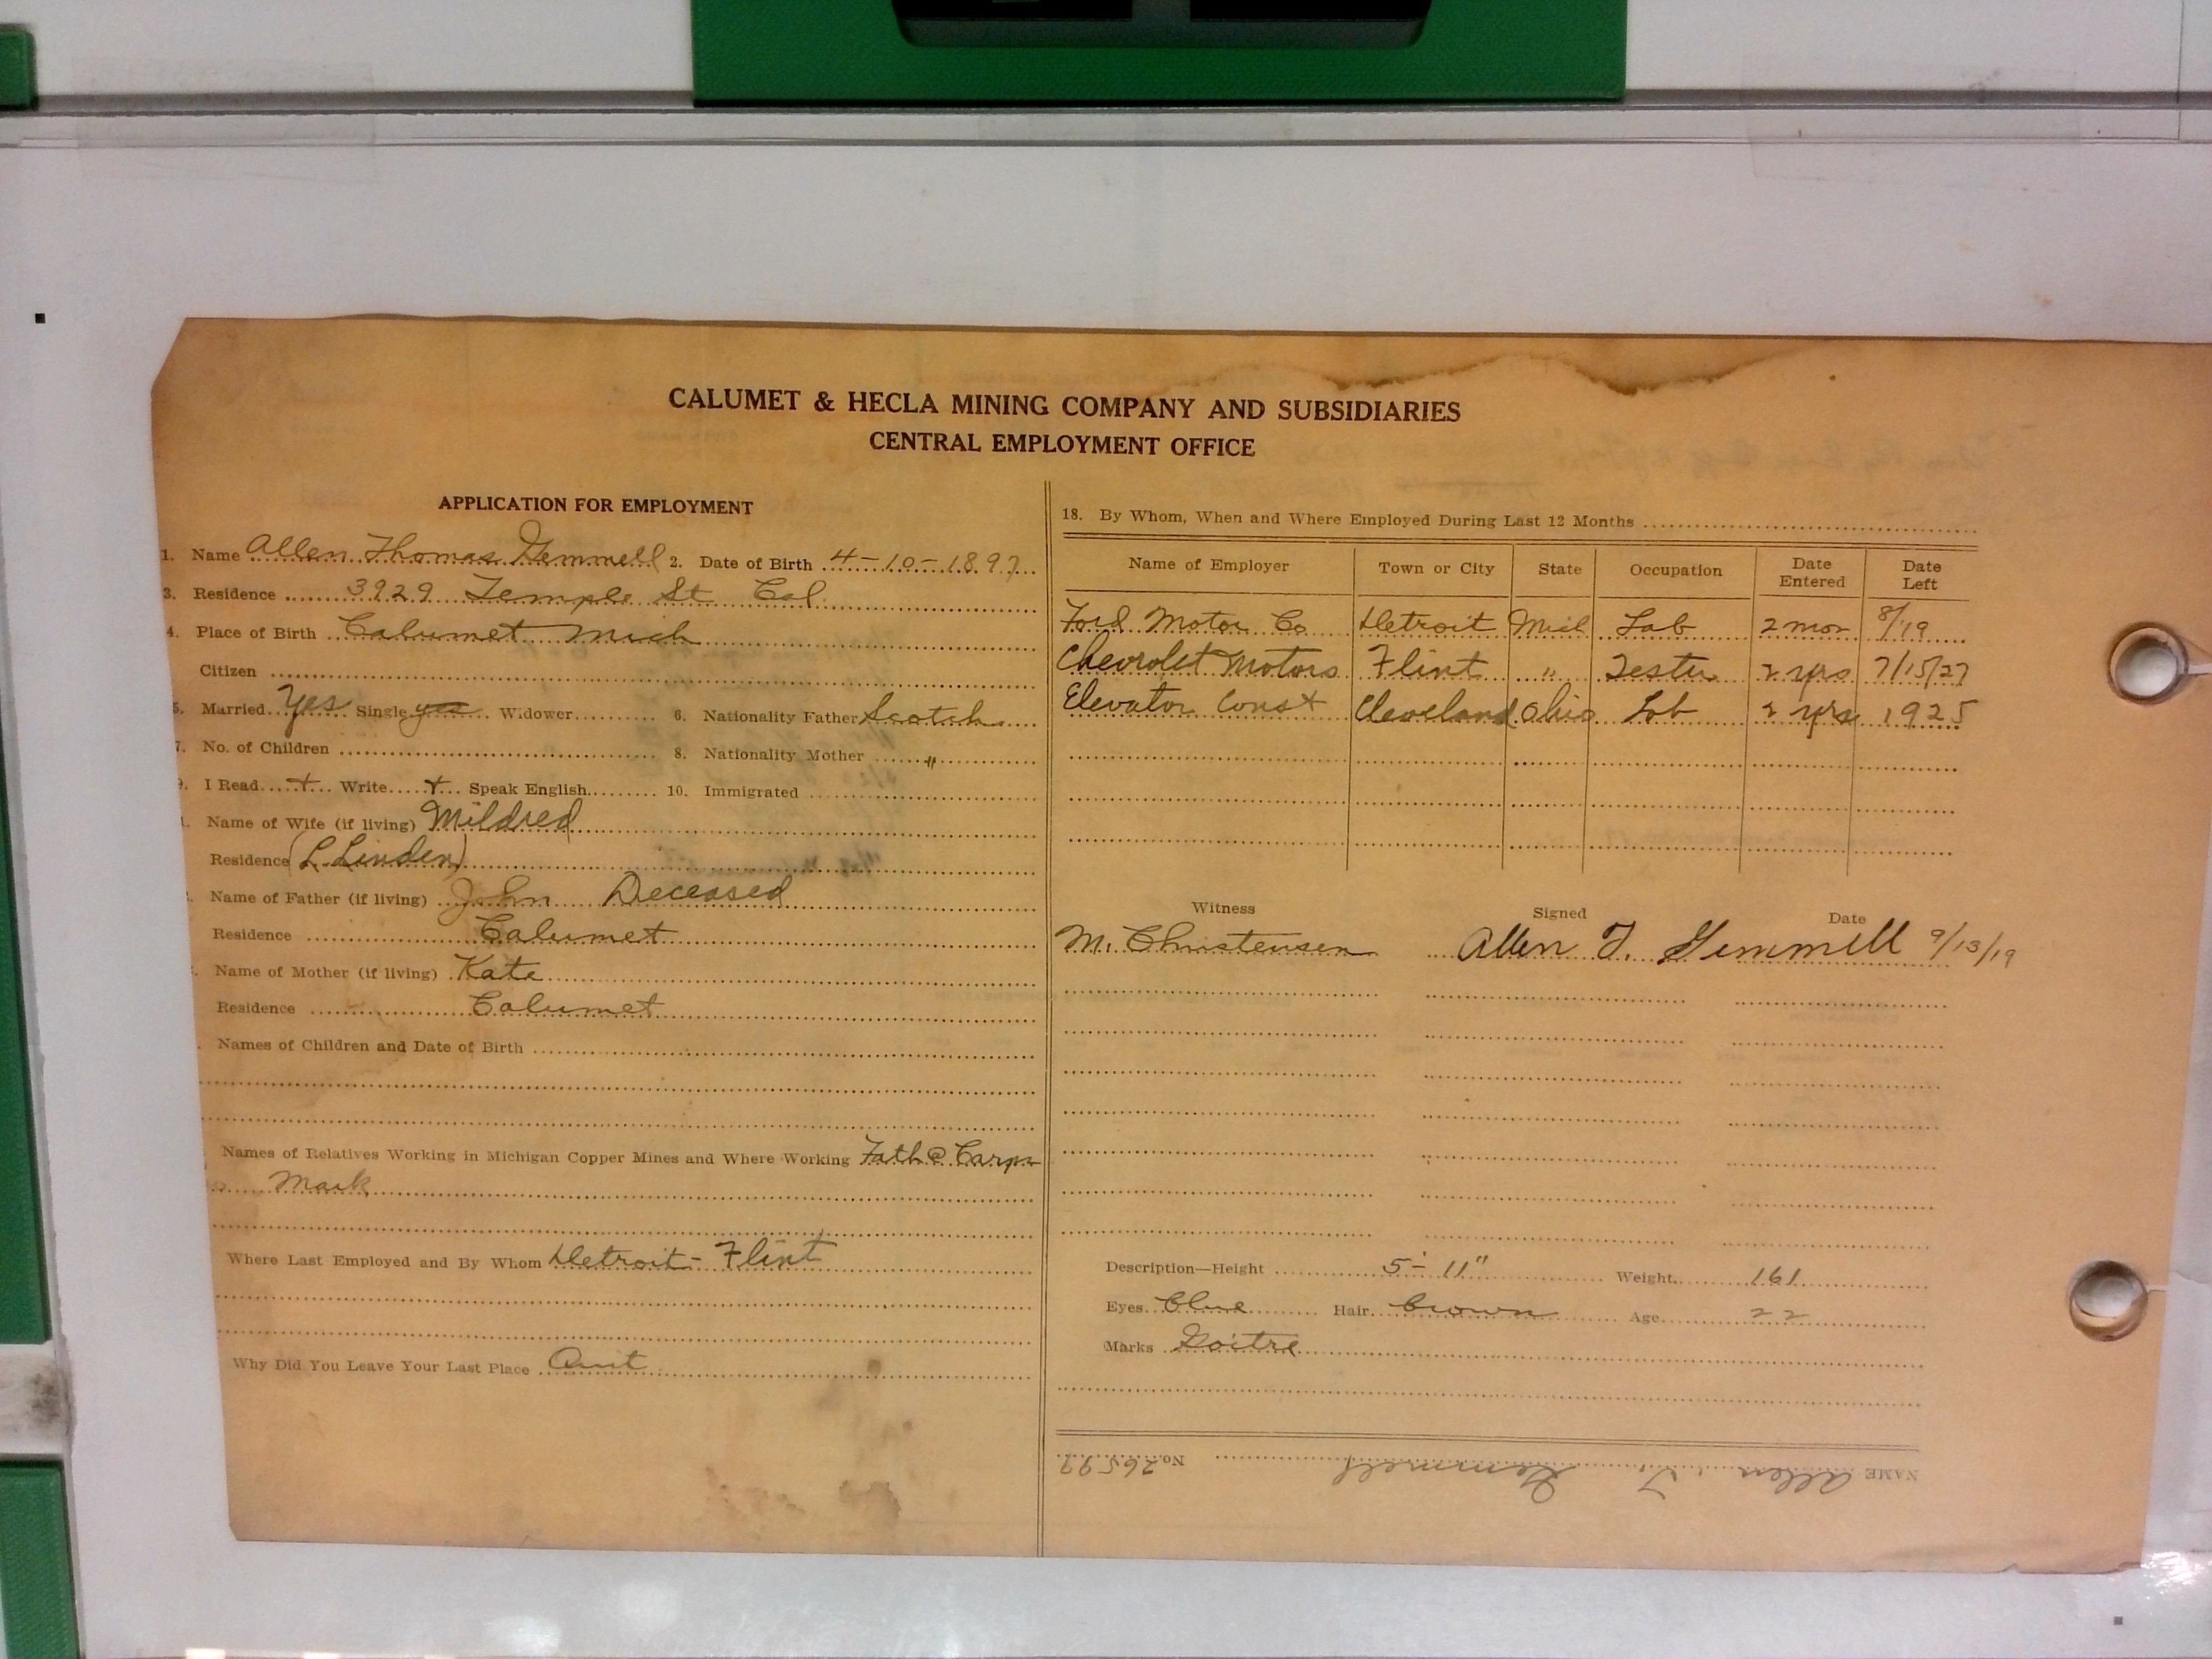 CALUMET & HECLA MINING COMPANY AND SUBSIDIARIES
CENTRAL EMPLOYMENT OFFICE
APPLICATION FOR EMPLOYMENT
1. Name Allen Thomas Gemmell 2. Date of Birth 4-10-1897
3. Residence 3929 Temple St Cal
4. Place of Birth Calumet Mich
Citizen
5. Married Yes Single yes Widower 6. Nationality Father Scotch
7. No. of Children 8. Nationality Mother "
9. I Read + Write + Speak English 10. Immigrated
1. Name of Wife (if living) Mildred
Residence (L. Linden)
Name of Father (if living) John Deceased
Residence Calumet
Name of Mother (if living) Kate
Residence Calumet
Names of Children and Date of Birth
Names of Relatives Working in Michigan Copper Mines and Where Working Fath @ Carp
Mack
Where Last Employed and By Whom Detroit - Flint
Why Did You Leave Your Last Place Quit
18. By Whom, When and Where Employed During Last 12 Months
Name of Employer Town or City State Occupation Date Entered Date Left
Ford Motor Co Detroit Mich Lab 2 mos 8/19
Chevrolet Motors Flint " Tester 2 yrs 7/15/27
Elevator Const Cleveland Ohio Lab 2 yrs 1925
Witness Signed Date
M. Christensen Allen T. Gemmell 9/13/19
Description—Height 5-11" Weight 161
Eyes Blue Hair brown Age 22
Marks Goitre
NAME Allen T. Gemmell No. 26597